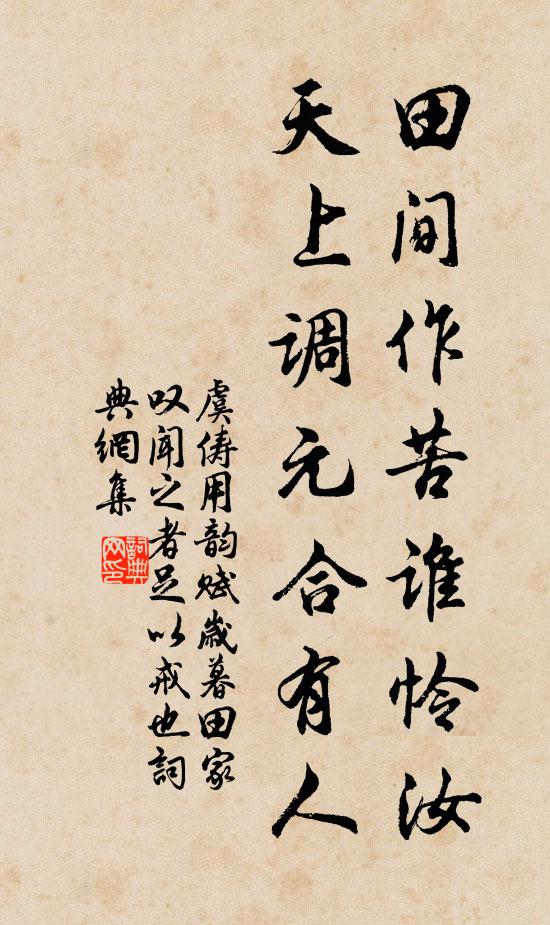 田间作苦谁怜汝
天上调元合有人
虞俦用韵赋岁暮田家
叹闻之者足以戒也词
典網集
詞典
网印